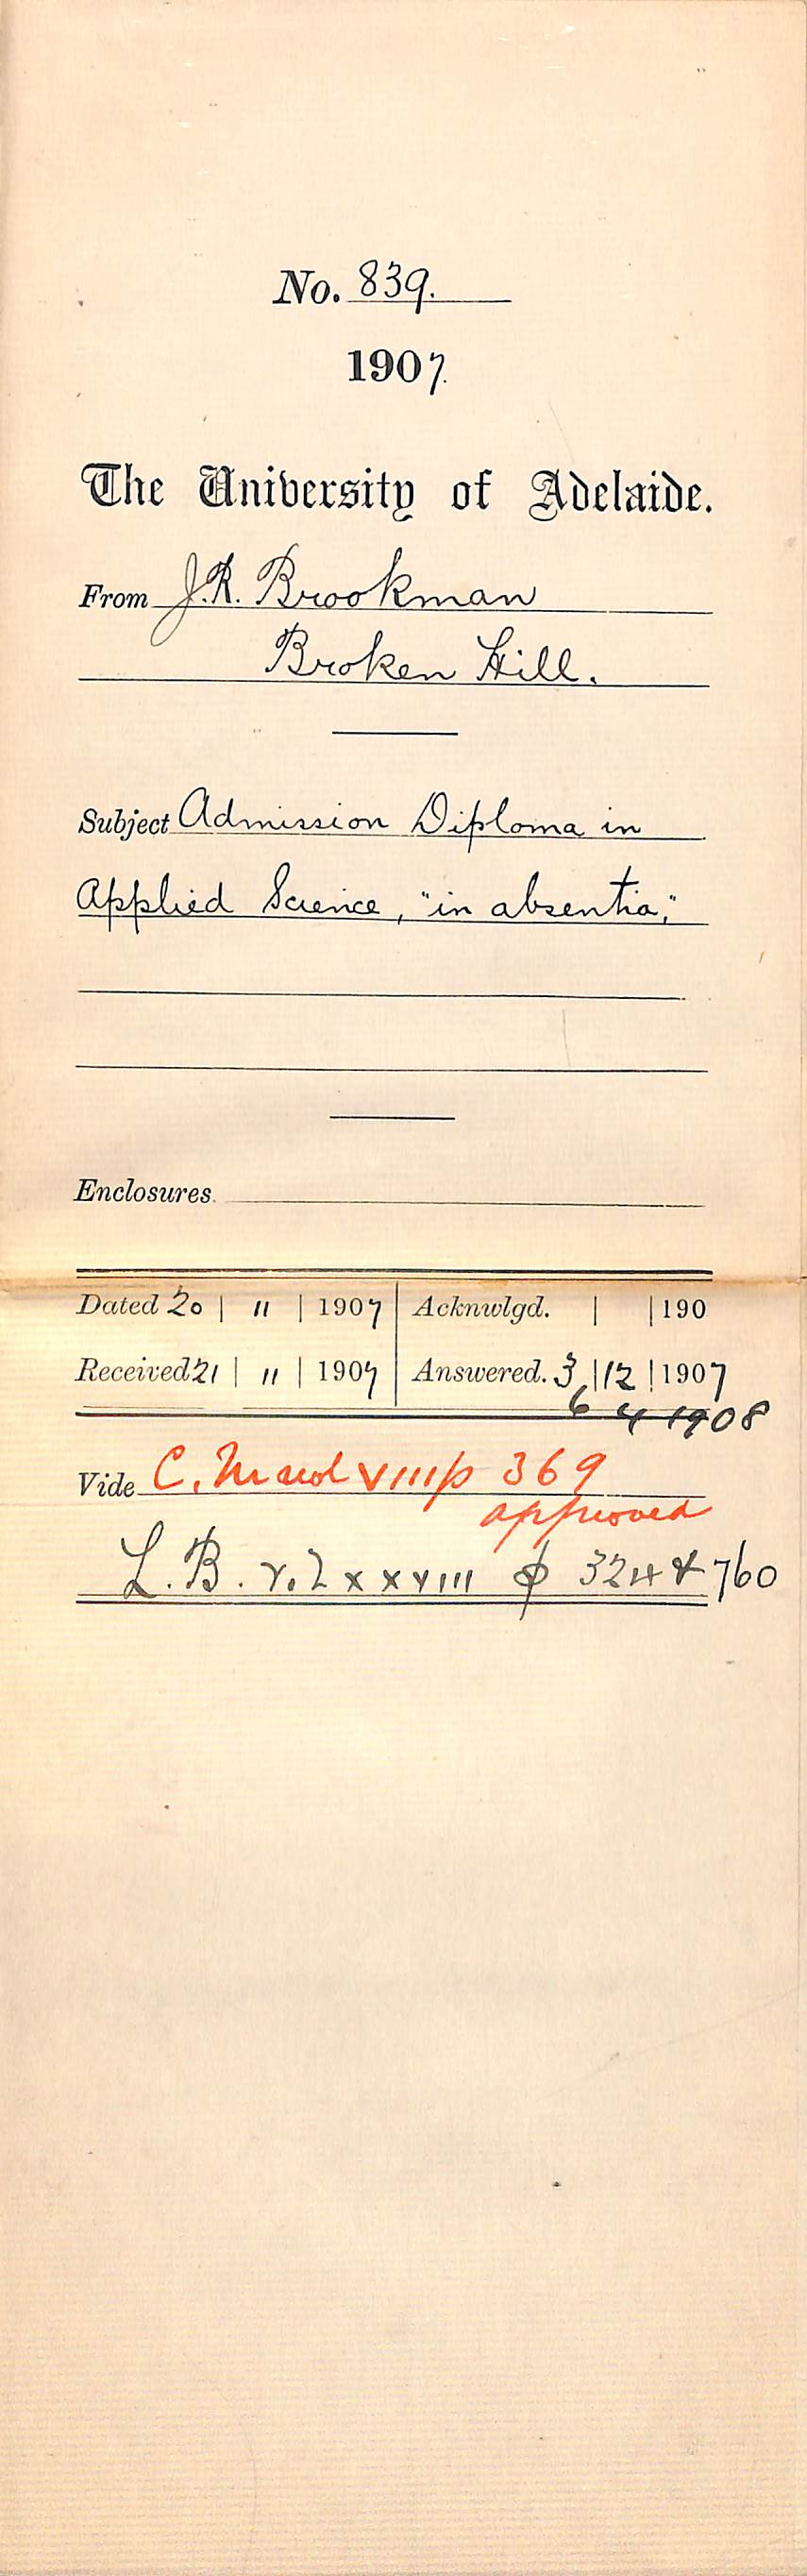 No. 839.
1907.
The University of Adelaide.
From J.R. Brookman
Broken Hill.
Subject Admission Diploma in
Applied Science, "in absentia,"
Enclosures.
Dated 20 | 11 | 1907 Acknwlgd. | | 190
Received 21 | 11 | 1907 Answered. 3 | 12 | 1907
6 4 1908
Vide C. M vol VIII p 369
approved
L. B. v. LXXXVIII p 324 & 760